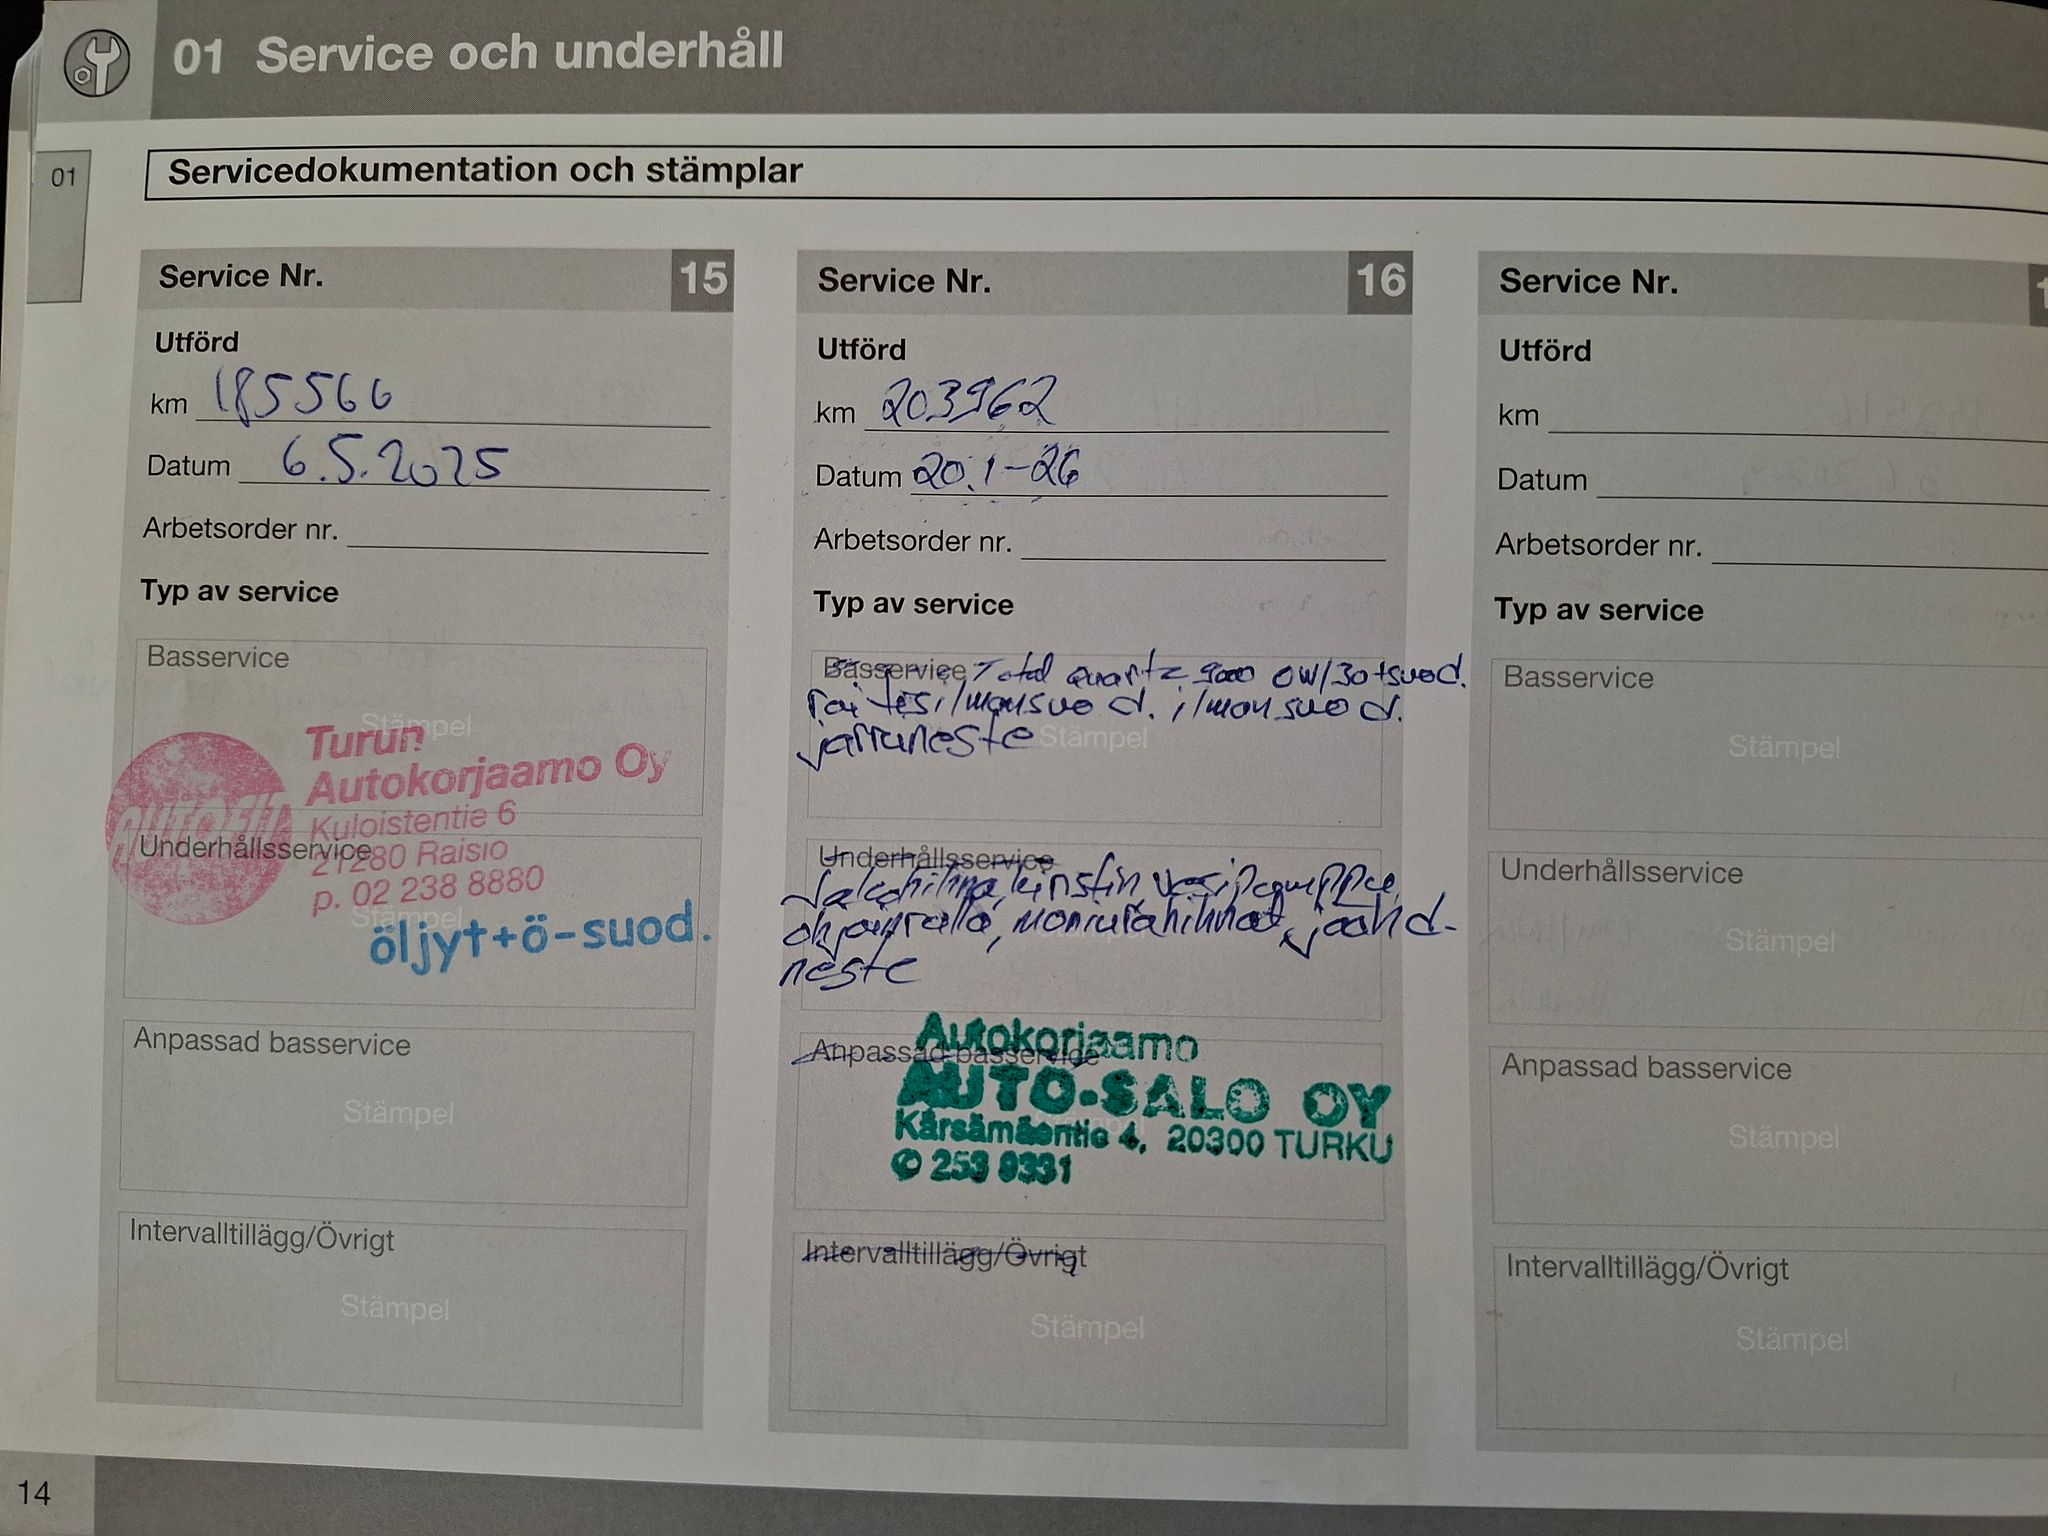 01 Service och underhåll
01
Servicedokumentation och stämplar
Service Nr. 15
Utförd
km 185566
Datum 6.5.2025
Arbetsorder nr.
Typ av service
Basservice
Stämpel
Turun
Autokorjaamo Oy
Kuloistentie 6
21280 Raisio
p. 02 238 8880
Underhållsservice
Stämpel
öljyt+ö-suod.
Anpassad basservice
Stämpel
Intervalltillägg/Övrigt
Stämpel
Service Nr. 16
Utförd
km 203962
Datum 20.1-26
Arbetsorder nr.
Typ av service
Basservice Total quartz 9000 0W/30+suod.
raitesilmansuod. ilmansuod.
jarruneste
Stämpel
Underhållsservice
Jakohihna, kiristin, vesipumppu,
ohjainrulla, moniurahihnat, jäähd-
neste
Anpassad basservice
Autokorjaamo
AUTO-SALO OY
Kärsämäentie 4, 20300 TURKU
✆ 253 9331
Intervalltillägg/Övrigt
Stämpel
Service Nr.
Utförd
km
Datum
Arbetsorder nr.
Typ av service
Basservice
Stämpel
Underhållsservice
Stämpel
Anpassad basservice
Stämpel
Intervalltillägg/Övrigt
Stämpel
14